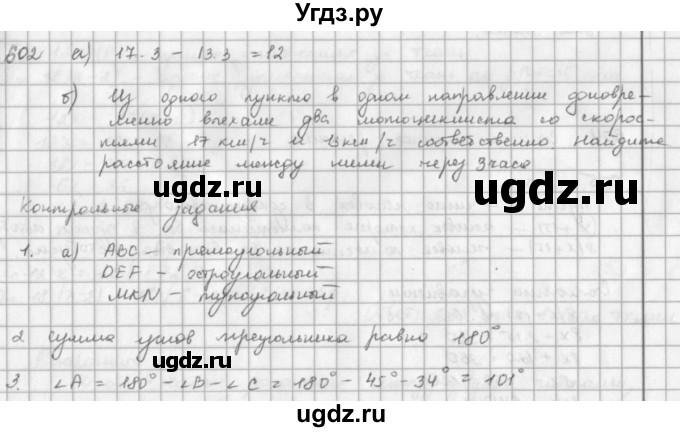 Угдз.ру
602 а) 17 · 3 - 13 · 3 = 12
б) Из одного пункта в одном направлении одновре-
менно выехали два мотоциклиста со скорос-
тями 17 км/ч и 13 км/ч соответственно. Найдите
расстояние между ними через 3 часа
ugdz.ru ugdz.ru
Контрольные задания
ugdz.ru
1. а) ABC – прямоугольный
DEF – остроугольный
MKN – тупоугольный
ugdz.ru ugdz.ru
2. Сумма углов треугольника равна 180°
ugdz.ru
3. ∠A = 180° - ∠B - ∠C = 180° - 45° - 34° = 101°
ugdz.ru